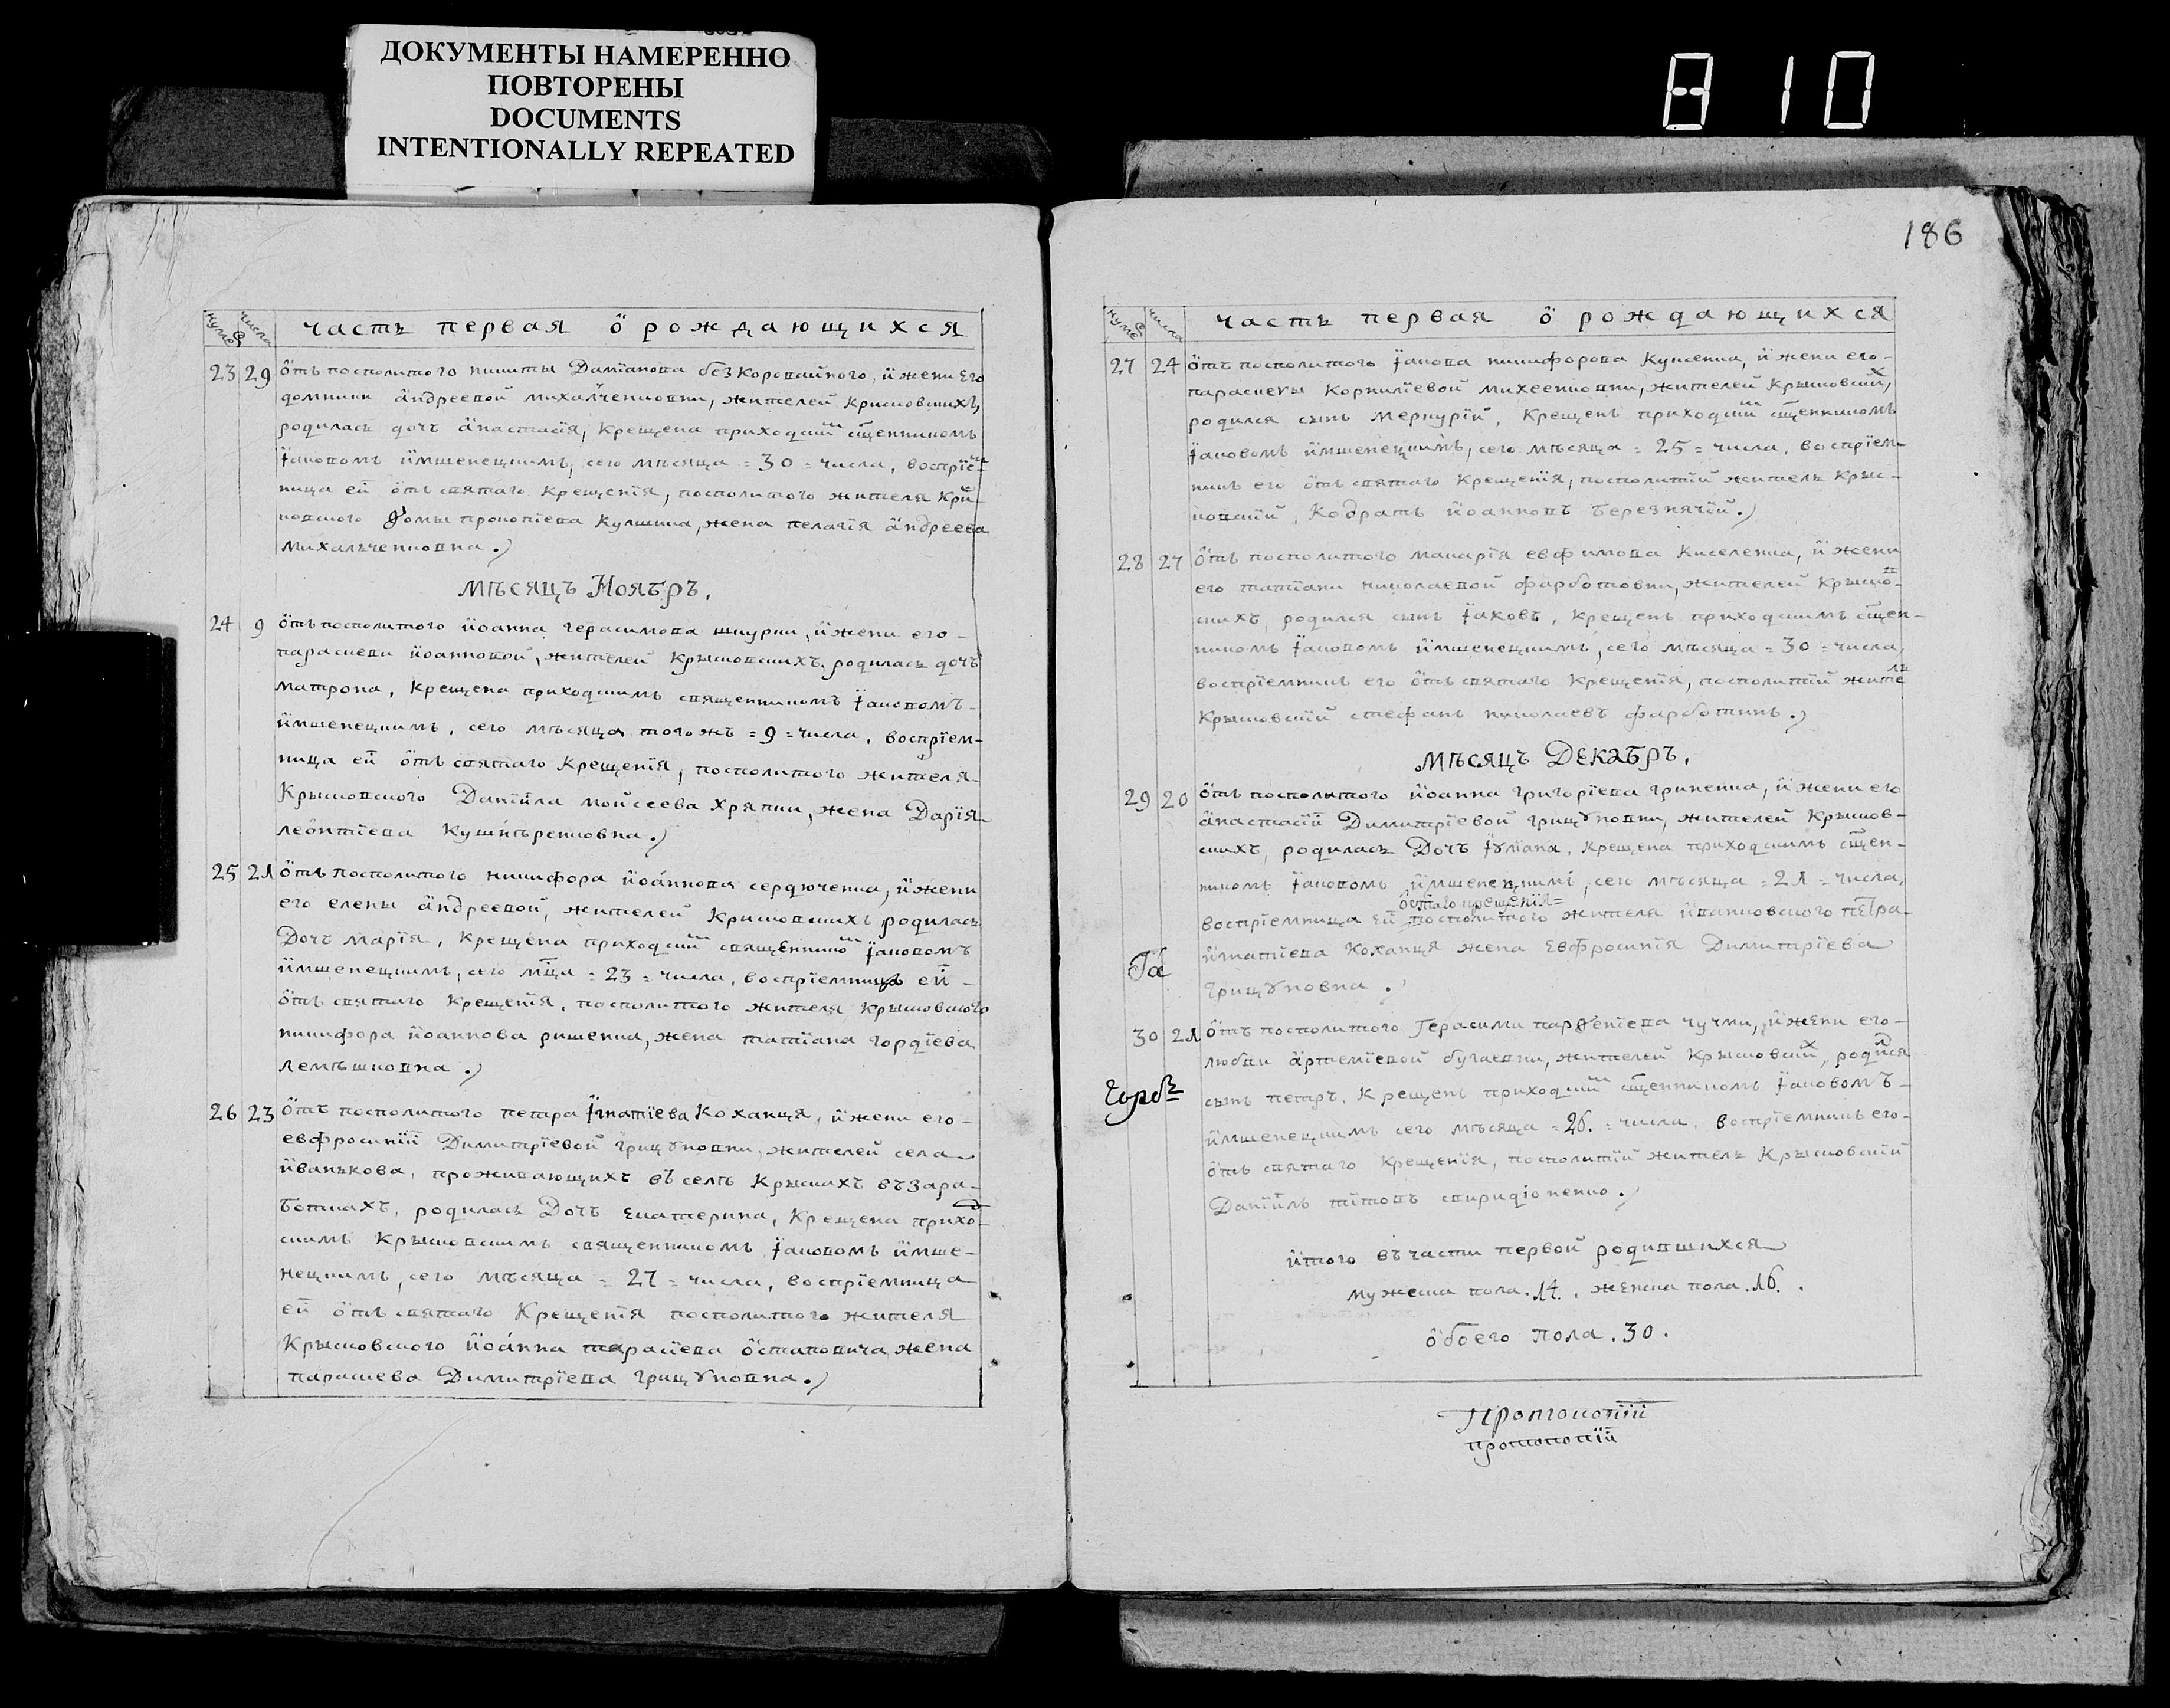 ДОКУМЕНТЫ НАМЕРЕННО
ПОВТОРЕНЫ
DOCUMENTS
INTENTIONALLY REPEATED
810
нумеръ
числа
часть первая о рождающихся
23 29 ѿ посполитого никиты Даміанова безкоровайного, и жени его
домники андреевой михалченковни, жителей крисковскихъ,
родилась дочъ анастасія, крещена приходскимъ сщенникомъ
Іаковомъ имшенецкимъ, сего мѣсяца = 30 = числа, воспріем-
ница ей ѿ святаго крещенія, посполитого жителя кри-
ковского Ѳомы прокопіева кулшика, жена пелагія андреева
михальченковна.
Мѣсяцъ Ноябръ.
24 9 ѿ посполитого иоанна герасимова шкурки, и жени его
параскеви иоанновой, жителей крысковскихъ, родилась дочъ
матрона, крещена приходскимъ священникомъ Іаковомъ
имшенецкимъ, сего мѣсяца того жъ = 9 = числа, воспріем-
ница ей ѿ святаго крещенія, посполитого жителя
крысковского Даніила моисеева хряпки, жена Дарія
леонтіева кушнѣренковна.
25 21 ѿ посполитого никифора иоаннова сердюченка, и жени
его елены андреевой, жителей крисковскихъ родилась
Дочъ марія, крещена приходскимъ священникомъ Іаковомъ
имшенецкимъ, сего мца = 23 = числа, воспріемница ей
ѿ святаго крещенія, посполитого жителя крысковского
никифора иоаннова ришенка, жена татіана гордіева
лемѣшковна.
26 23 ѿ посполитого петра Ігнатіева Коханця, и жени его
евфросиніи Димитріевой грицуновни, жителей села
иванькова, проживающихъ въ селѣ крыскахъ въ зара-
боткахъ, родилась Дочъ екатерина, крещена приход-
скимъ крысковскимъ священникомъ Іаковомъ имше-
нецкимъ, сего мѣсяца = 27 = числа, воспріемница
ей ѿ святаго крещенія посполитого жителя
крысковского иоанна тарасіева остаповича, жена
параскева Димитріева грицуновна.
186
нумеръ
числа
часть первая о рождающихся
27 24 ѿ посполитого Іакова никифорова куценка, и жени его
параскевы корниліевой михеенковни, жителей крысковскихъ,
родился сынъ меркурій, крещенъ приходскимъ сщенникомъ
Іаковомъ имшенецкимъ, сего мѣсяца = 25 = числа, воспріем-
никъ его ѿ святаго крещенія, посполитій житель крыс-
ковскій, кодратъ иоанновъ березнячій.
28 27 ѿ посполитого макарія евфимова киселенка, и жени
его татіани николаевой фарботковни, жителей крысков-
скихъ, родился сынъ Іаковъ, крещенъ приходскимъ сщен-
никомъ Іаковомъ имшенецкимъ, сего мѣсяца = 30 = числа,
воспріемникъ его ѿ святаго крещенія, посполитій житель
крысковскій стефанъ николаевъ фарботкинъ.
мѣсяцъ Декабръ.
29 20 ѿ посполитого иоанна григоріева гриненка, и жени его
анастасіи Димитріевой грицуновни, жителей крысков-
скихъ, родилась Дочъ Іуліана, крещена приходскимъ сщен-
никомъ Іаковомъ имшенецкимъ, сего мѣсяца = 21 = числа,
воспріемница ей ѿ стаго крещенія = посполитого жителя иванковского петра
игнатіева коханця жена Евфросинія Димитріева
грицуновна.
30 21 ѿ посполитого Герасима парѳеніева чучми, и жени его
любви артеміевой бугаевни, жителей крысковскихъ, родился
сынъ петръ, крещенъ приходскимъ сщенникомъ Іаковомъ
имшенецкимъ сего мѣсяца = 26. = числа, воспріемникъ его
ѿ святаго крещенія, посполитій житель крысковскій
Даніилъ тітовъ свиридіоненко.
итого въ части первой родившихся
мужеска пола .14. , женска пола .16. .
обоего пола .30.